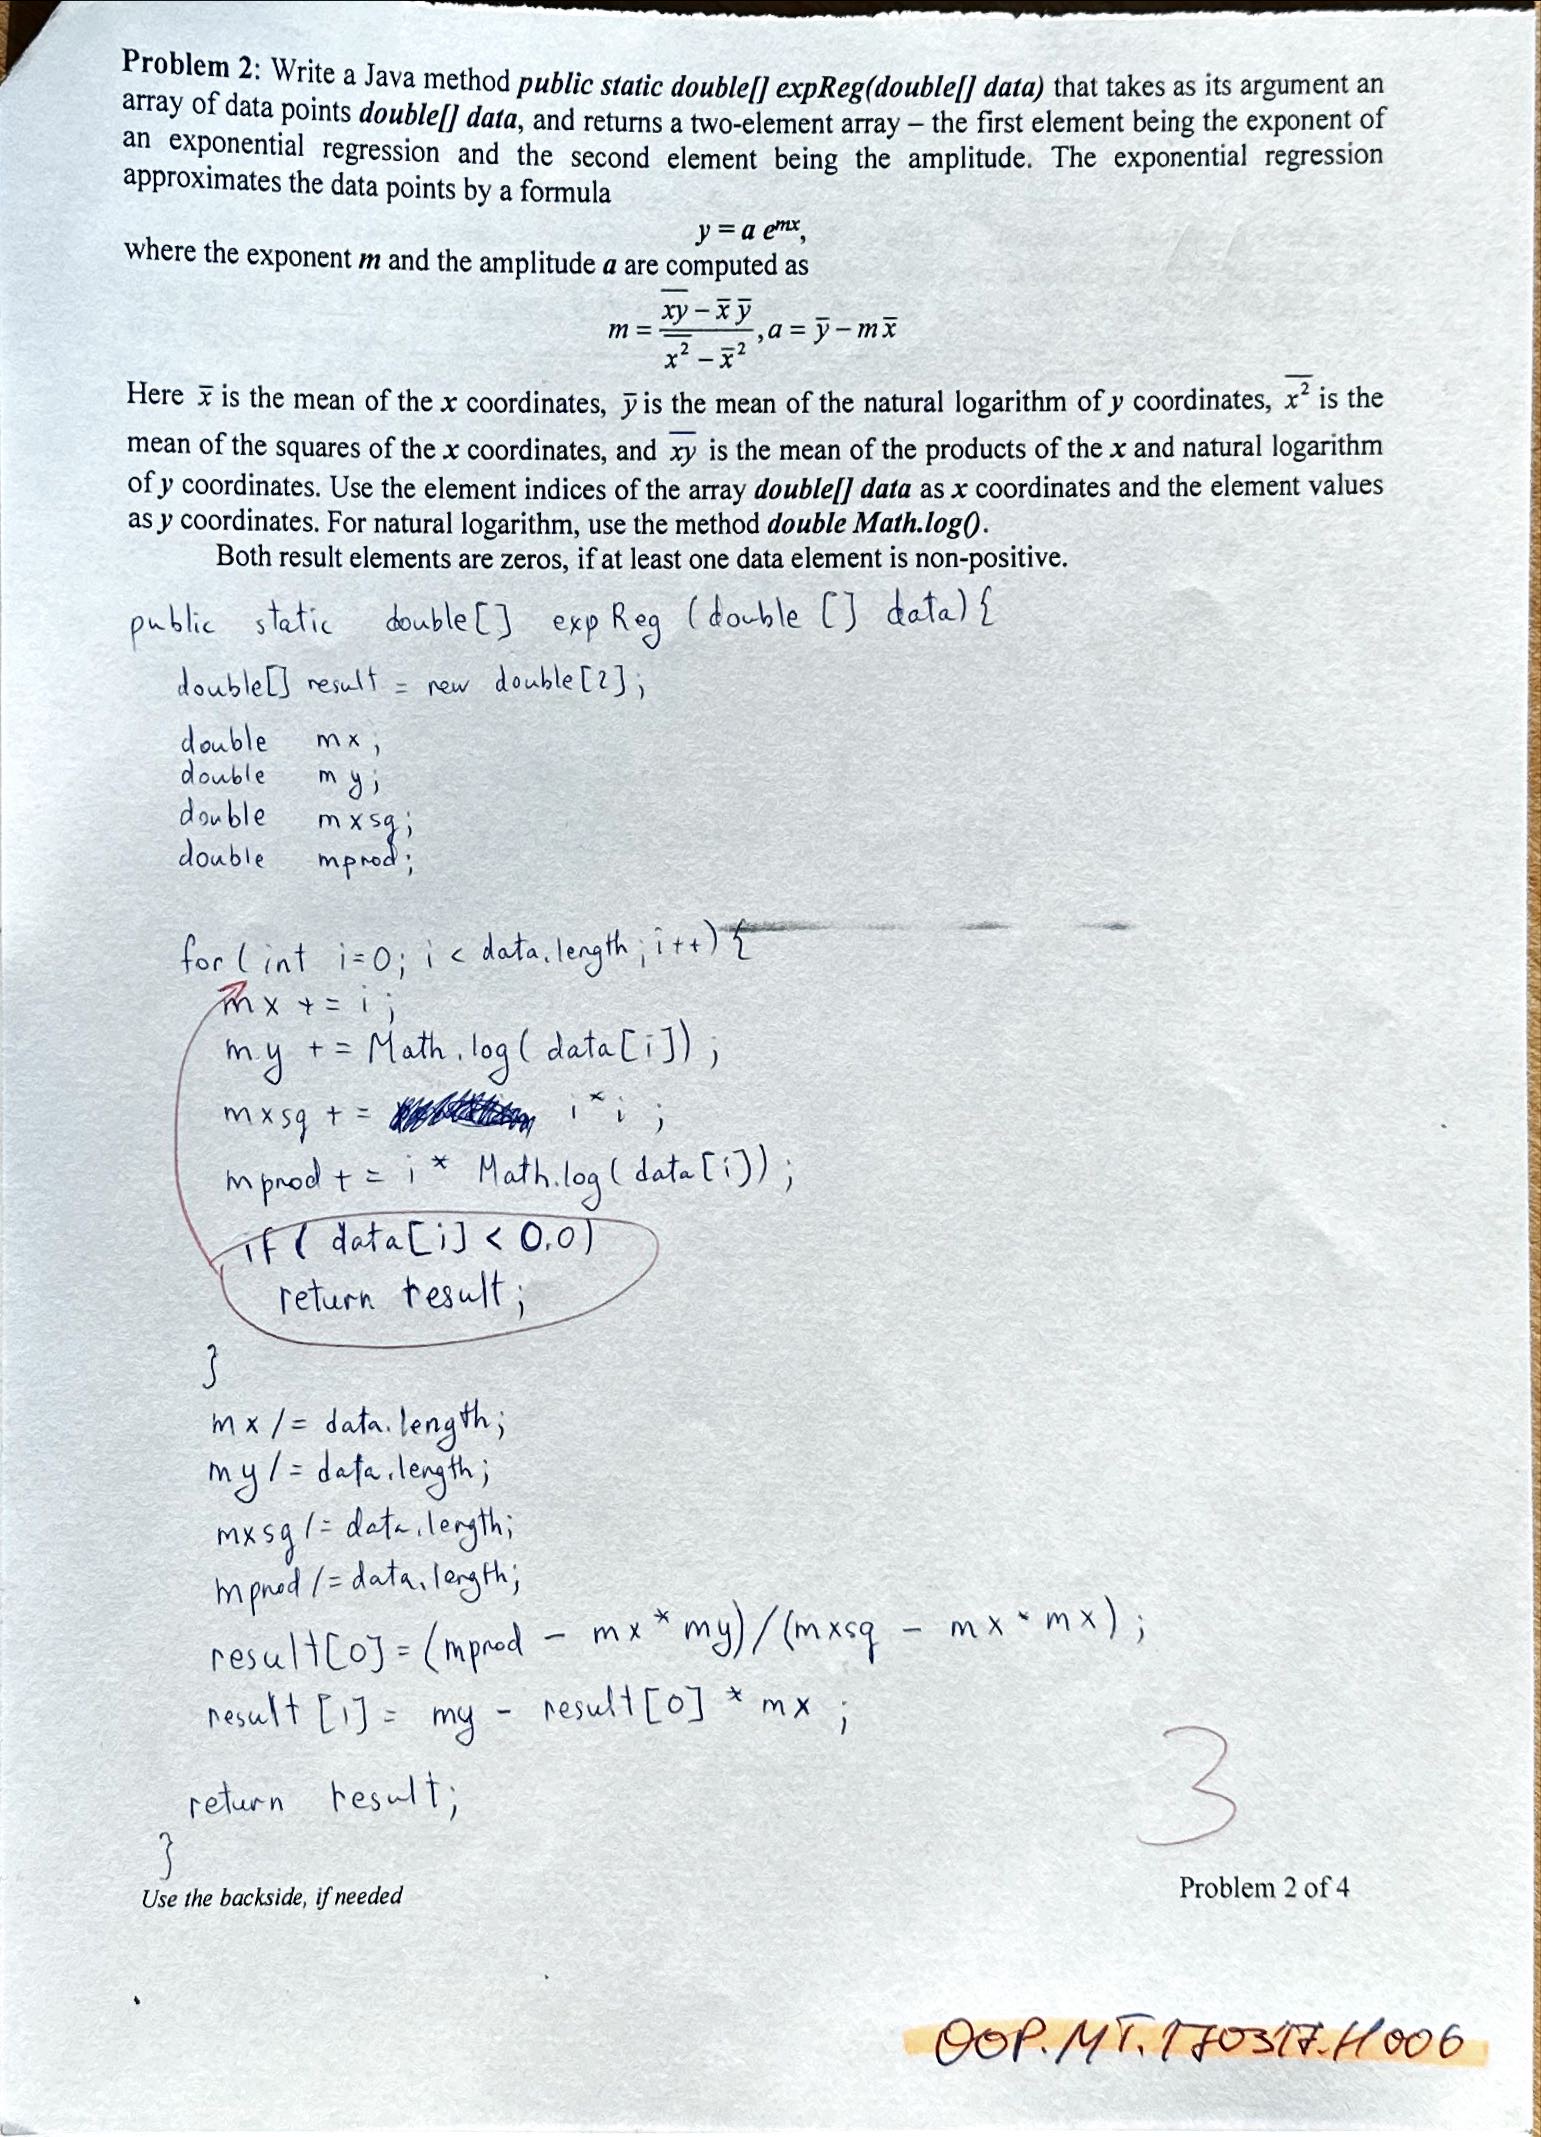 Problem 2: Write a Java method public static double[] expReg(double[] data) that takes as its argument an
array of data points double[] data, and returns a two-element array – the first element being the exponent of
an exponential regression and the second element being the amplitude. The exponential regression
approximates the data points by a formula
y = a e^{mx},
where the exponent m and the amplitude a are computed as
m = \frac{\overline{xy} - \bar{x}\,\bar{y}}{\overline{x^2} - \bar{x}^2}, a = \bar{y} - m\bar{x}
Here x̄ is the mean of the x coordinates, ȳ is the mean of the natural logarithm of y coordinates, \overline{x^2} is the
mean of the squares of the x coordinates, and \overline{xy} is the mean of the products of the x and natural logarithm
of y coordinates. Use the element indices of the array double[] data as x coordinates and the element values
as y coordinates. For natural logarithm, use the method double Math.log().
Both result elements are zeros, if at least one data element is non-positive.
public static double[] expReg (double [] data){
double[] result = new double[2];
double mx;
double my;
double mxsq;
double mprod;
for (int i=0; i < data.length; i++) {
mx += i;
my += Math.log( data[i]);
mxsq += i*i;
mprod += i * Math.log( data[i]);
if ( data[i] < 0.0)
return result;
}
mx /= data.length;
my /= data.length;
mxsq /= data.length;
mprod /= data.length;
result[0] = (mprod - mx * my)/(mxsq - mx * mx);
result [1] = my - result[0] * mx;
return result;
}
3
Use the backside, if needed
Problem 2 of 4
OOP.MT.170317.H006